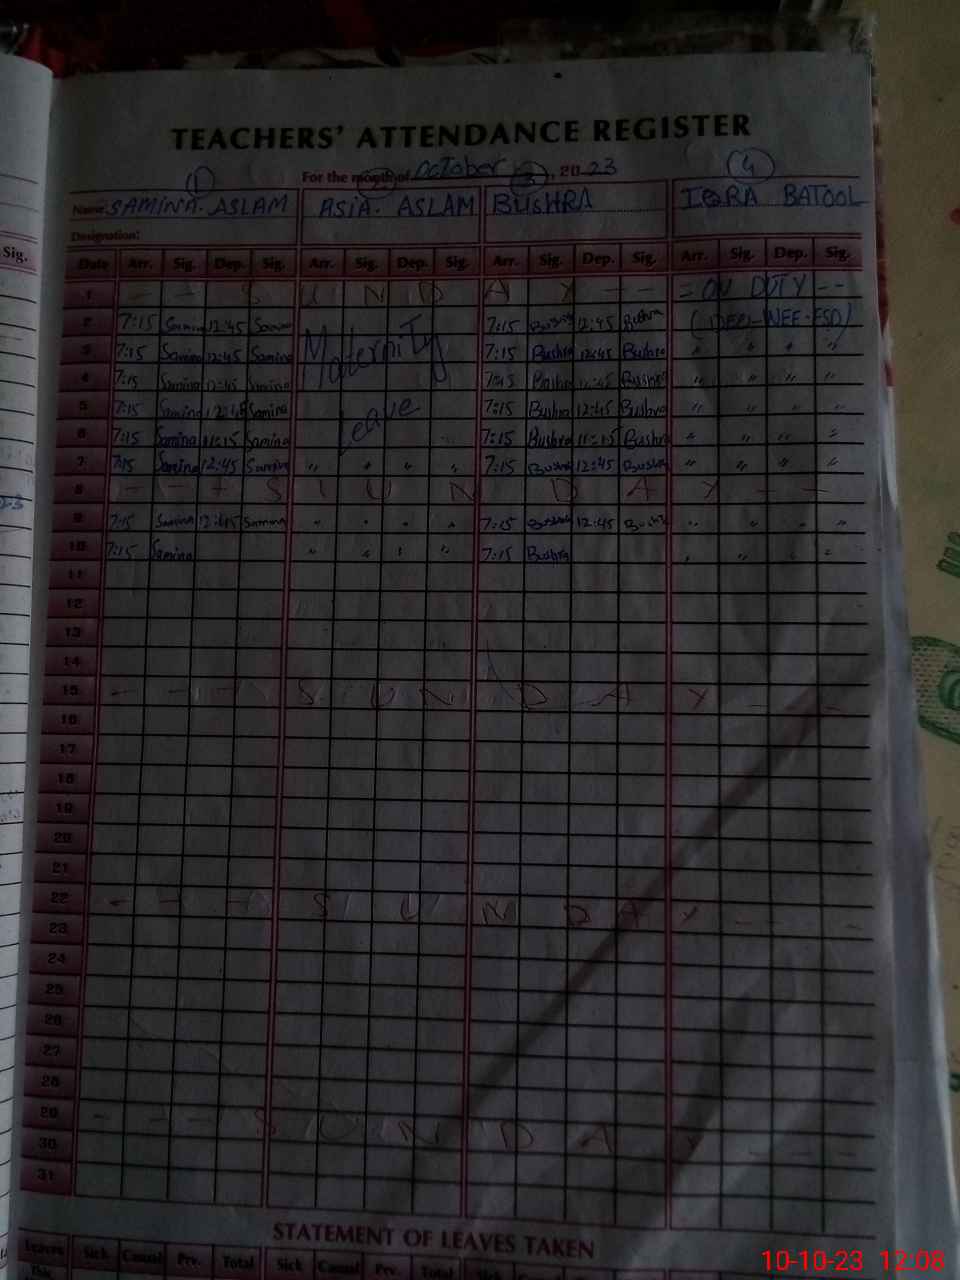 TEACHERS' ATTENDANCE REGISTER
For the month of October, 2023
1 2 3 4
Name: SAMINA. ASLAM ASIA. ASLAM BUSHRA IQRA BATOOL
Designation:
Sig.
Date Arr. Sig. Dep. Sig. Arr. Sig. Dep. Sig. Arr. Sig. Dep. Sig. Arr. Sig. Dep. Sig.
1 - - S U N D A Y - - - = ON DUTY - -
2 7:15 Samina 12:45 Samina Maternity 7:15 Bushra 12:45 Bushra
3 7:15 Samina 12:45 Samina 7:15 Bushra 12:45 Bushra " " " "
4 7:15 Samina 12:45 Samina 7:15 Bushra 12:45 Bushra " " " "
5 7:15 Samina 12:45 Samina Leave 7:15 Bushra 12:45 Bushra " " " "
6 7:15 Samina 11:15 Samina 7:15 Bushra 11:15 Bushra " " " "
7 7:15 Samina 12:45 Samina " " " " 7:15 Bushra 12:45 Bushra " " " "
8 - - - S U N D A Y - -
9 7:15 Samina 12:45 Samina " " " " 7:15 Bushra 12:45 Bushra " " " "
10 7:15 Samina " " " " 7:15 Bushra " " " "
11
12
13
14
15 - - - S U N D A Y - -
16
17
18
19
20
21
22 - - - S U N D A Y - - -
23
24
25
26
27
28
29 - - - S U N D A Y - - -
30
31
STATEMENT OF LEAVES TAKEN
Leaves Sick Casual Prv. Total Sick Casual Prv. Total
This
10-10-23 12:08